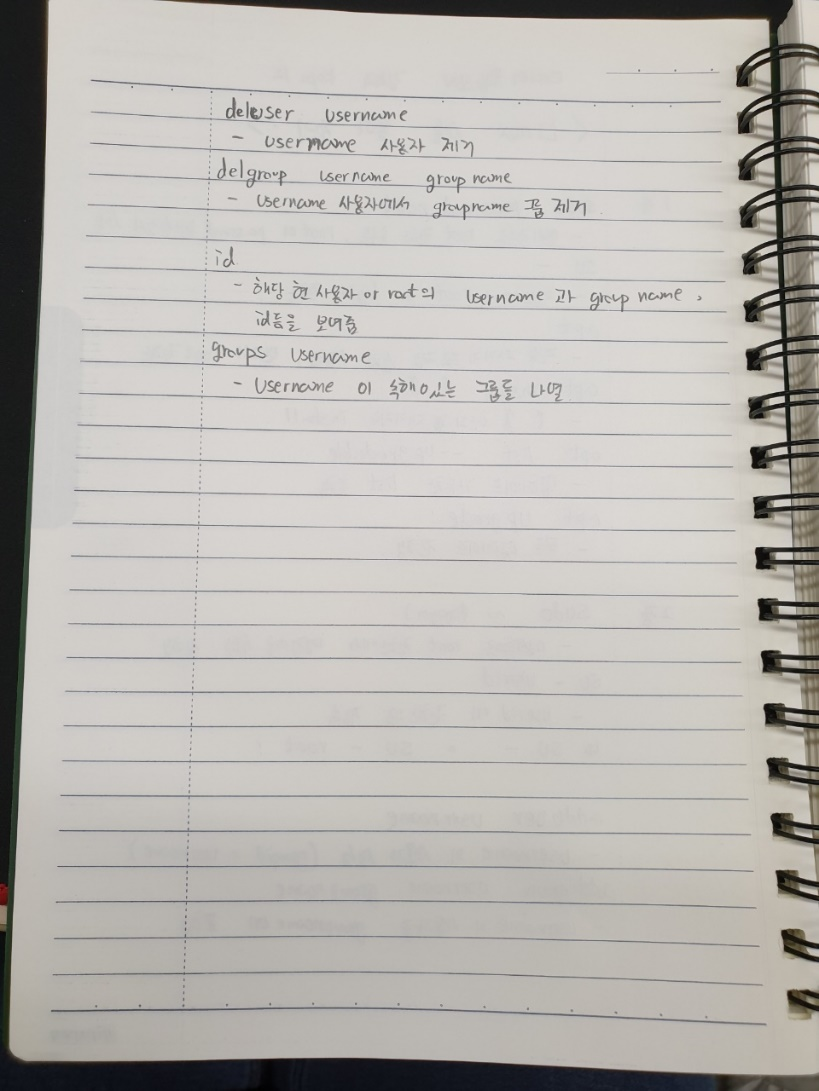 deluser username
- username 사용자 제거
delgroup username groupname
- username 사용자에서 groupname 그룹 제거
id
- 해당 현 사용자 or root의 username 과 group name,
id등을 보여줌
groups username
- username 이 속해있는 그룹들 나열